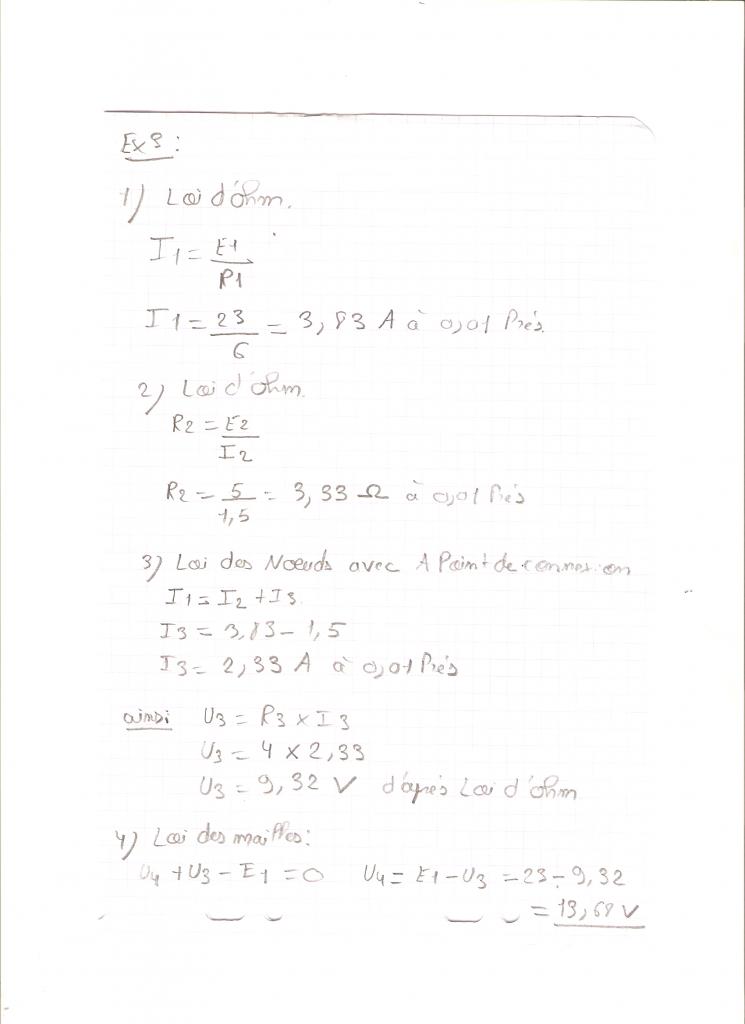 Ex 9 :
1) Loi d'ohm.
I1 = E1 / R1
I1 = 23 / 6 = 3,83 A à 0,01 Prés
2) Loi d'ohm.
R2 = E2 / I2
R2 = 5 / 1,5 = 3,33 Ω à 0,01 Prés
3) Loi des Noeuds avec A Point de connexion
I1 = I2 + I3
I3 = 3,83 - 1,5
I3 = 2,33 A à 0,01 Prés
ainsi U3 = R3 x I3
U3 = 4 x 2,33
U3 = 9,32 V d'aprés Loi d'ohm
4) Loi des mailles :
U4 + U3 - E1 = 0 U4 = E1 - U3 = 23 - 9,32
= 13,68 V